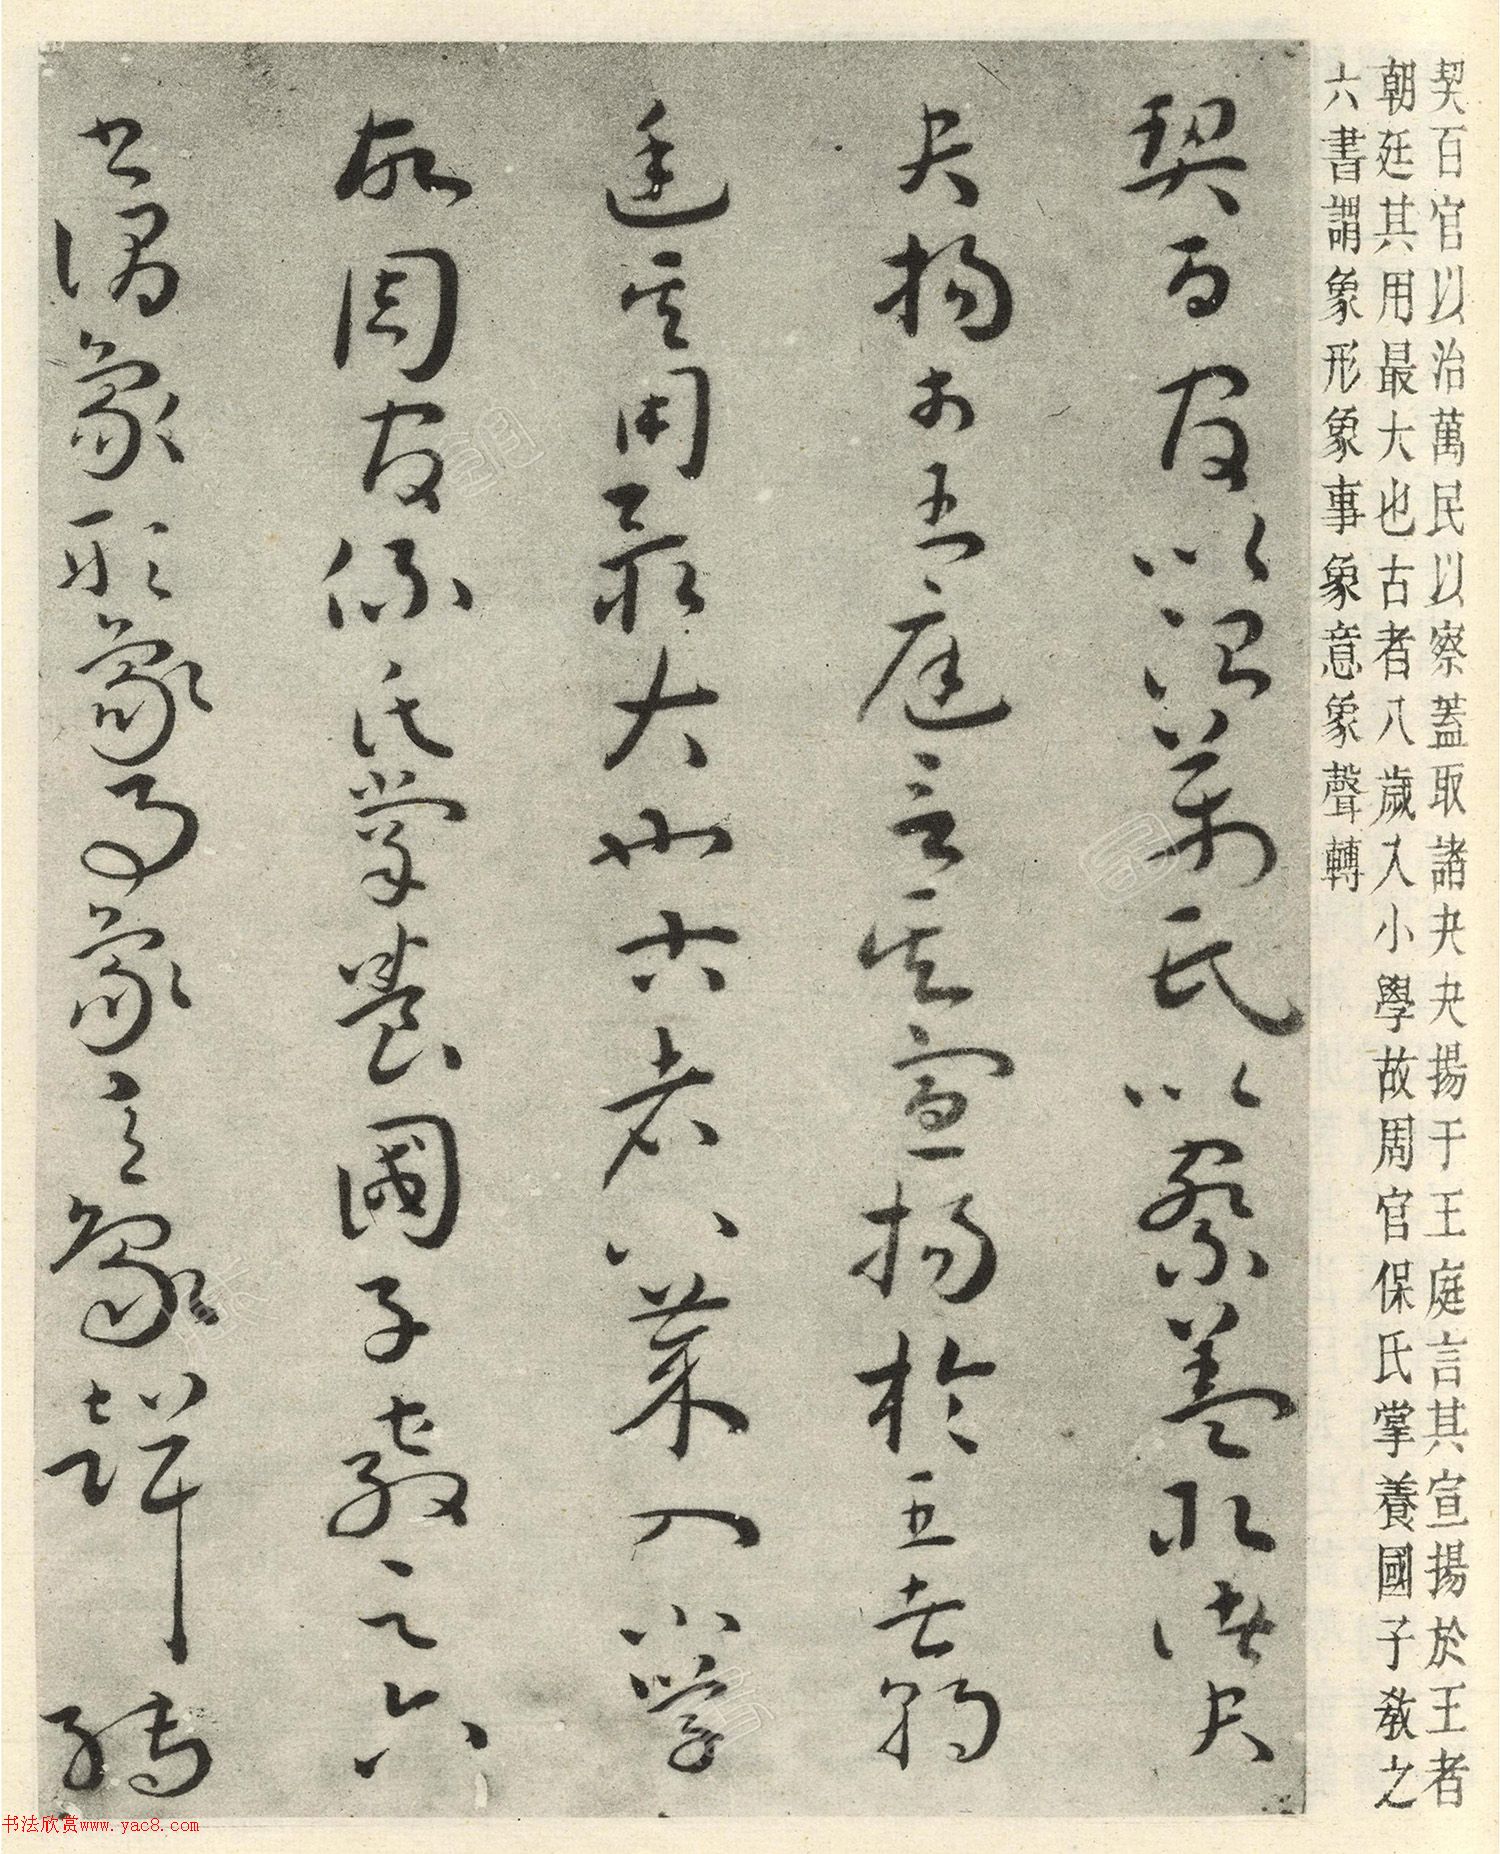 契百官以治萬民以察蓋取諸夬夬揚于王庭言其宣揚於王者
朝廷其用最大也古者八歲入小學故周官保氏掌養國子教之
六書謂象形象事象意象聲轉
契百官以治萬民以察蓋取諸夬
夬揚于王庭言其宣揚於王者朝
廷其用最大也古者八歲入小學
故周官保氏掌養國子教之六
書謂象形象事象意象聲轉
书法欣赏www.yac8.com